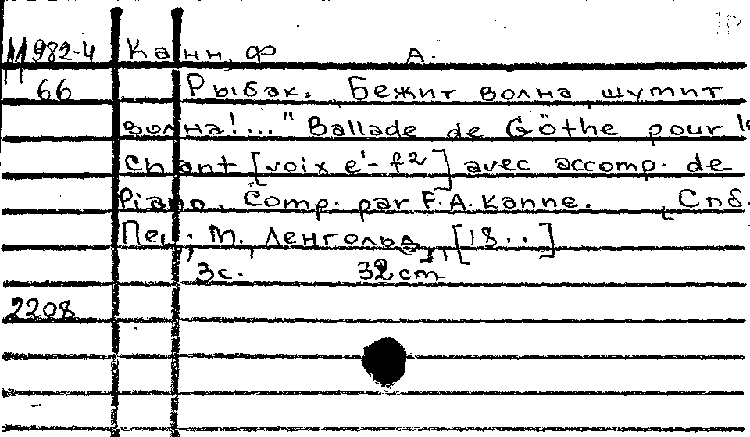 М 982-4 Канн, Ф А.
66 Рыбак. Бежит волна, шумит
волна!..." Ballade de Göthe pour le
Chant [voix e'-f2] avec accomp. de
Piano. Comp. par F. A. Kanne. [Спб.
М. Ленгольд], [18..]
3с. 32 cm
2208